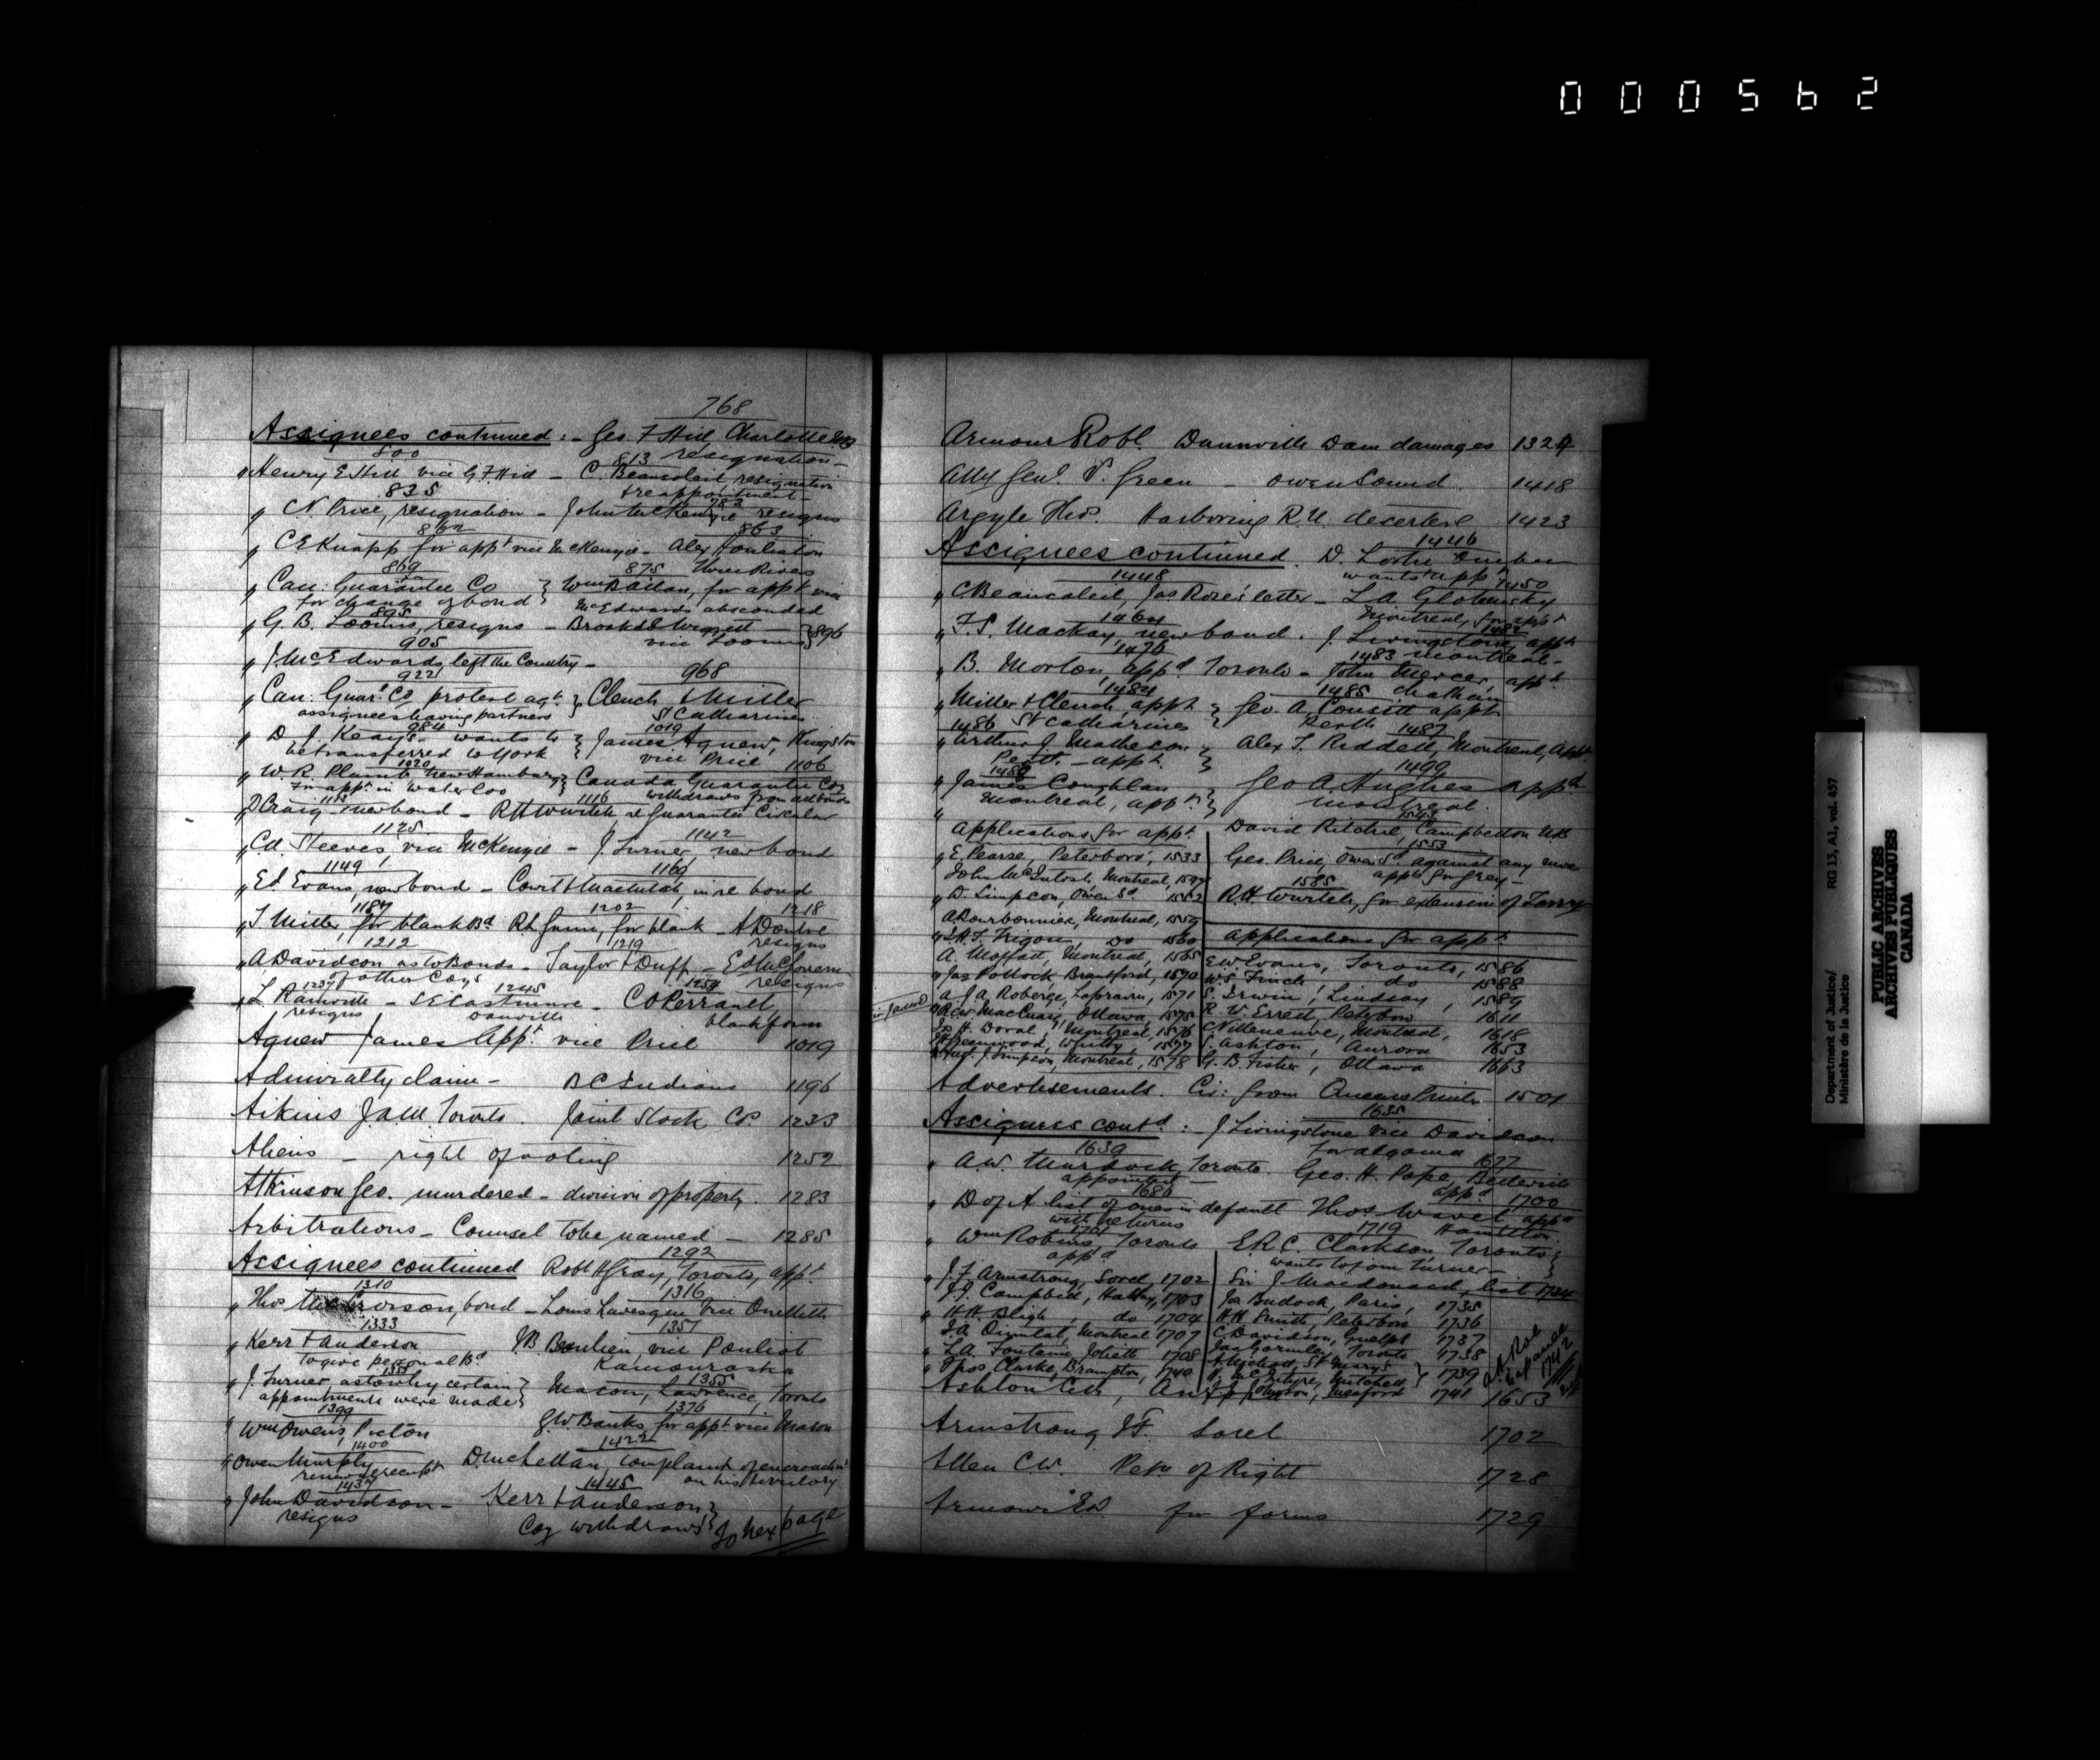 000562
768
Assignees continued :- Geo. F Hill, Charlotte NB
800 813 resignation -
" Henry E Hill vice G F Hill - C. Beausoleil resignation
835 & reappointment -
" C N. Price, resignation - John McKenzie resigns
862 863
" C E Knapp for appt vice McKenzie - Alex Houliston
869 875 Three Rivers
" Can: Guarantee Co } Wm Bailan, for appt vice
for change of bond } McEdwards absconded
895
" G. B. Loomis, resigns - Brooks & Wiggett } 896
905 vice Loomis }
" J McEdwards, left the Country -
922 968
" Can: Guar: Co protest agt } Clench & Miller
assignees having partners } St Catharines
984 1019
" D. J. Keays - wants to } James Agnew, Kingston
be transferred to York } vice Price 1106
1020
" W. R. Plumb New Hamburg } Canada Guarantee Coy
for appt in Waterloo } withdraws from all bonds
1116
D Craig - new bond - R H Wurtele re Guarantee Circular
1125 1142
" C A Steeves vice McKenzie - J. Turner new bond
1149 1169
" Ed Evans, new bond - Court & Macintosh in re bond
1187 1202 1218
" T Miller, for blank Bd R L Gunn, for blank - A Doutre
1212 1219 resigns
" A Davidson as to Bonds - Taylor & Duff - Ed McGovern
of other Coys resigns
1237 1245 1254
" L. Rainville - S E Eastmure - C O Perrault
resigns Danville blank form
Agnew James Appt vice Price 1019
Admiralty claim - B C Indians 1196
Aikins J.A.M. Toronto. Joint Stock Co. 1233
Aliens - right of voting 1252
Atkinson Geo. murdered - division of property. 1283
Arbitrations - Counsel to be named - 1285
1292
Assignees continued Robt H Gray, Toronto, appt
1310 1316
" Thos bond - Louis Lavesque vice Ouellette
1333 1351
" Kerr & Anderson J.B. Beaulieu, vice Pouliot
to give personal Bd Kamouraska
1355
" J. Turner as to why certain } Mason, Lawrence, Toronto
appointments were made }
1399 1376
" Wm Owens, Picton G.W. Banks for appt vice Mason
1400 1422
" Owen Murphy D McLellan, complaint of encroachmt
renewal receipt on his territory
1437 1445
" John Davidson - Kerr & Anderson }
resigns Coy withdraws } To nex page
Armour Robt. Dunnville Dam damages 1324
Atty Genl V. Green - Owen Sound 1418
Argyle Thos. Harboring R.N. deserters 1423
1446
Assignees continued. D. Quebec
1448 wants appt 1450
" C Beausoleil, Jas Rose's letter - L A Globensky
1464 Montreal, for appt
" F. S. Mackay, new bond. J. Livingstone appt
1476 1483 Montreal -
" B. Morton appd Toronto - John Mercer, appt
1484 1485 Chatham
" Miller & Clench appt } Geo. A. Consitt appt
1486 St Catharines } Perth 1487
" Arthur J. Matheson } Alex T. Riddell, Montreal, Appt
Perth - appt. } 1499
" James Coughlan } Geo A. Hughes appd
Montreal, appt. } Montreal.
Applications for appt. David Ritchie, Campbellton NB
1553
" E. Pearse, Peterboro', 1533 Geo. Price, Owen Sd against any more
John McIntosh, Montreal, appts for Grey -
" D. Simpson, Owen Sd 1552 1585
R.H. Wurtele, for extension of Terry
A Dourbonniex, Montreal, 1559
" L.H.F. Trigou, do 1560 Applications for appt
A. Moffat, Montreal, 1565 E W Evans, Toronto, 1586
" Jas Pollock, Brantford, 1570 W S. Finch, do 1588
" A. J. A. Roberge, Laprairie, 1571 S. Irwin, Lindsay, 1589
MacCuaig, Ottawa, 1575 R. W. Errett, Peterboro 1611
H. Doral, Montreal, 1576 C Villeneuve, Montreal, 1618
Greenwood, Whitby, 1577 J. Ashton, Aurora 1653
J. Simpson, Montreal, 1578 G. B. Fisher, Ottawa 1663
Advertisements. Cir: from Queens Printer 1501
1635
Assignees contd :- J Livingstone vice Davidson
1639 for Algoma 1677
" A.W. Murdock, Toronto. Geo. H. Pope, Belleville
appointed - appd
1686 1700
" D of A list of ones in default Thos. appd
with returns 1719 Hamilton
" Wm Robins, Toronto E.R.C. Clarkson, Toronto }
appd wants to join Turner - }
" J. F. Armstrong, Sorel, 1702 Sir J. Macdonald, list 1724
J. J. Campbell, 1703 Jas Budock, Paris, 1735
" H.H. Bligh, do 1704 H.H. Smith, Peterboro 1736
Montreal 1707 C Davidson, Guelph 1737
" L.A. Fontaine, Joliette 1708 Jas Gormley, Toronto 1738
" Thos Clarke, Brampton, 1740 St Marys } 1739
McIntyre, Mitchell }
Johnston, Meaford 1741
Napanee 1742
Ashton 1653
Armstrong J F. Sorel 1702
Allen C.W. Petn of Right 1728
Armour Ed for forms 1729
Department of Justice/
Ministère de la Justice
RG 13, A1, vol. 457
PUBLIC ARCHIVES
ARCHIVES PUBLIQUES
CANADA